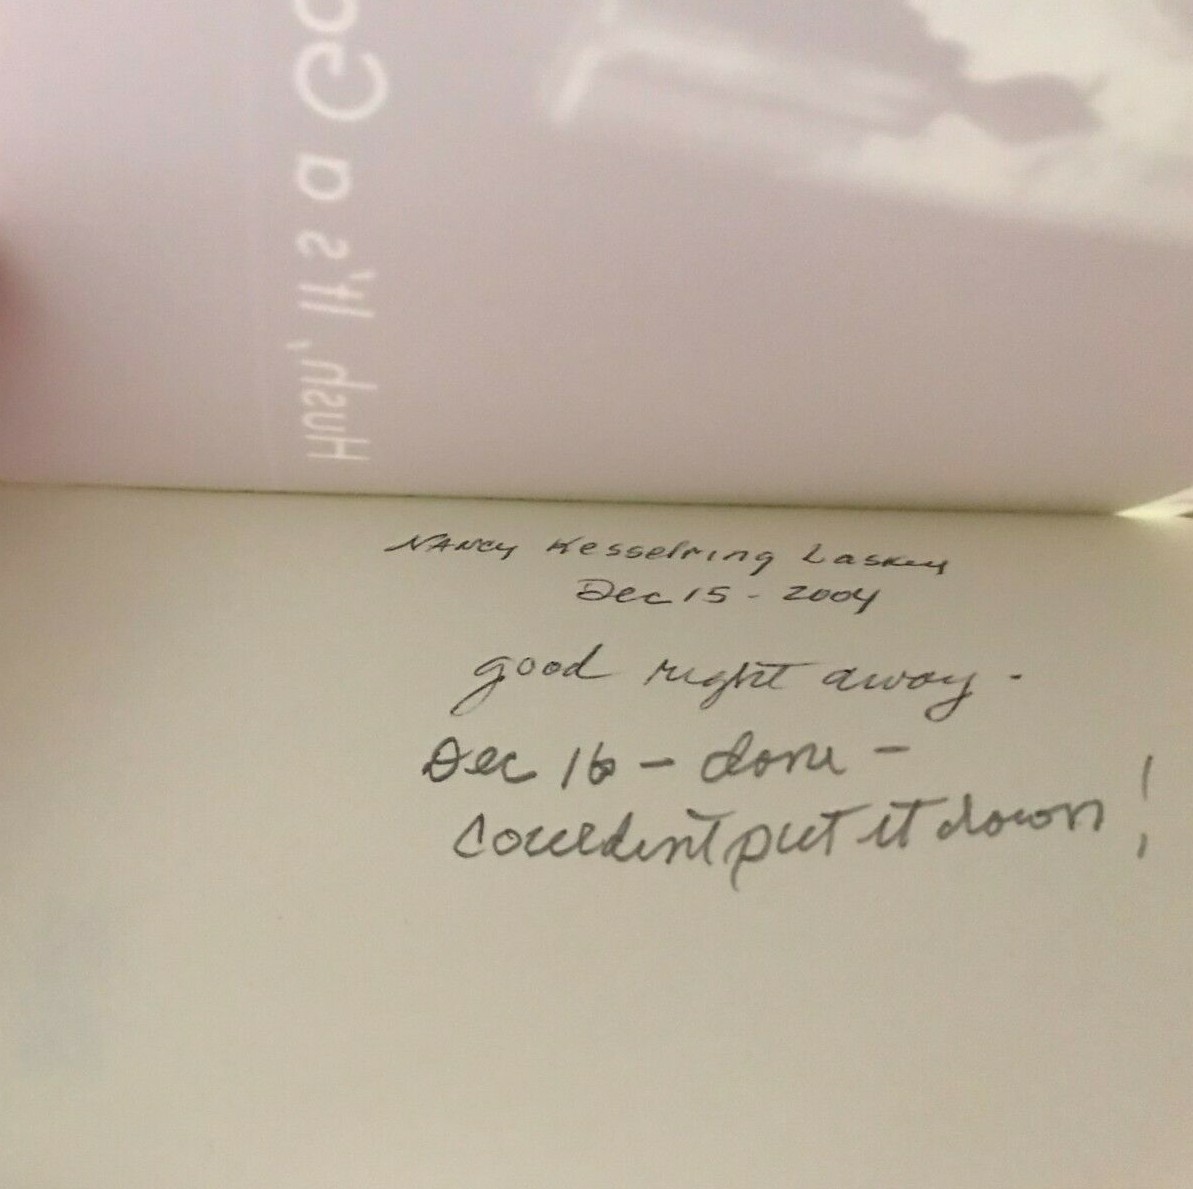 Hush, It's a Ga
NANCY Kesselring Laskey
Dec 15 - 2004
good right away -
Dec 16 - done -
Couldn't put it down!